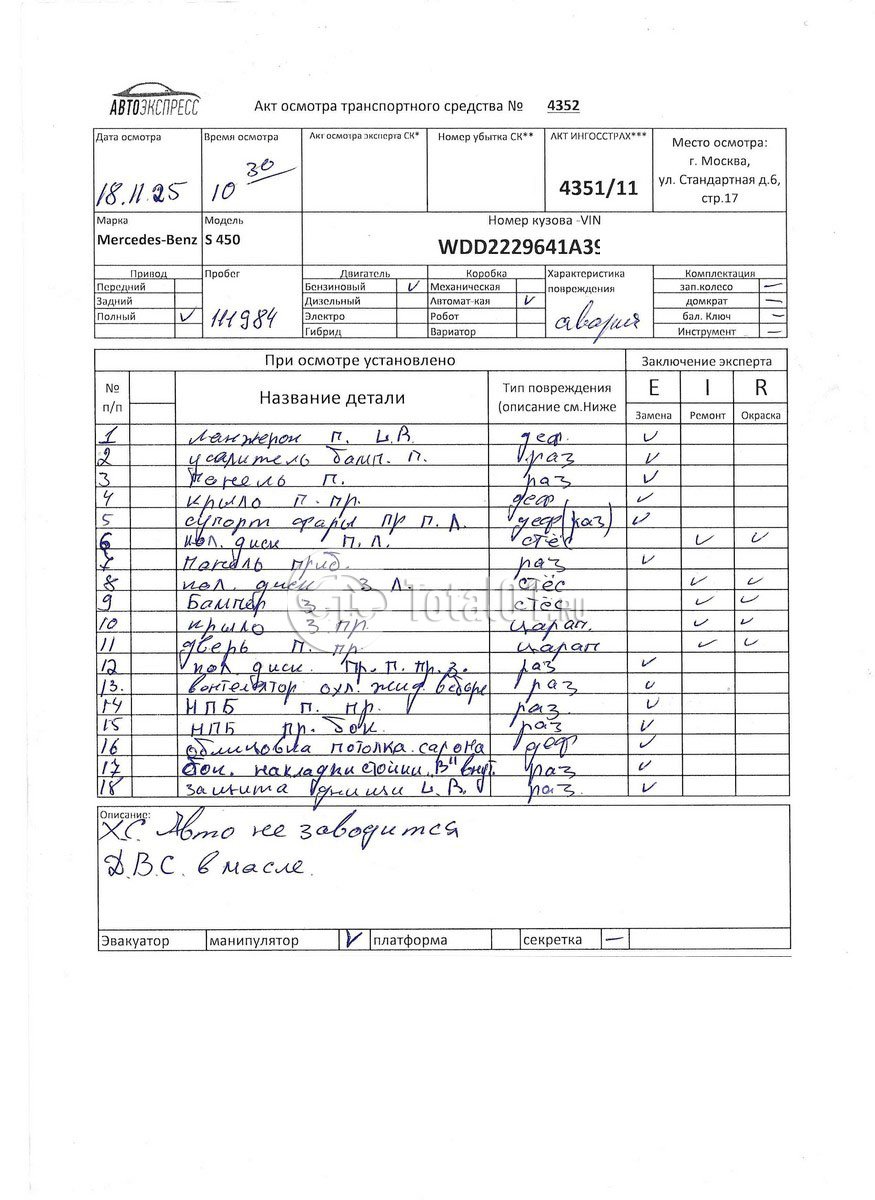 АВТОЭКСПРЕСС
Акт осмотра транспортного средства № 4352
Дата осмотра Время осмотра Акт осмотра эксперта СК* Номер убытка СК** АКТ ИНГОССТРАХ*** Место осмотра:
г. Москва,
ул. Стандартная д.6,
стр.17
18.11.25 10 30 4351/11
Марка Модель Номер кузова -VIN
Mercedes-Benz S 450 WDD2229641A39
Привод Пробег Двигатель Коробка Характеристика повреждения Комплектация
Передний Бензиновый ✓ Механическая зап.колесо —
Задний Дизельный Автомат-кая ✓ домкрат —
Полный ✓ 111984 Электро Робот авария бал. Ключ —
Гибрид Вариатор Инструмент —
При осмотре установлено Заключение эксперта
№ п/п Название детали Тип повреждения (описание см.Ниже E I R
Замена Ремонт Окраска
1 Ланжерон п. L.R. деф. ✓
2 усилитель бамп. п. раз ✓
3 Панель п. раз ✓
4 крыло п. пр. деф. ✓
5 супорт фары пр п. л. деф(раз) ✓
6 кол. диск п. л. стёс ✓ ✓
7 Панель приб. раз ✓
8 кол. диск з л. стёс ✓ ✓
9 Бампер з. стёс ✓ ✓
10 крыло з. пр. царап. ✓ ✓
11 дверь п. пр. царап ✓ ✓
12 кол диск. пр. п. пр. з. раз ✓
13. вентелятор охл. жид. в сборе раз ✓
14 НПБ п. пр. раз. ✓
15 НПБ пр. бок. раз ✓
16 облицовка потолка салона деф ✓
17 бок. накладки стойки „В" внут. раз ✓
18 защита днища L.R. раз. ✓
Total01.ru
Описание:
Х.С. Авто не заводится
Д.В.С. в масле.
Эвакуатор манипулятор ✓ платформа секретка —